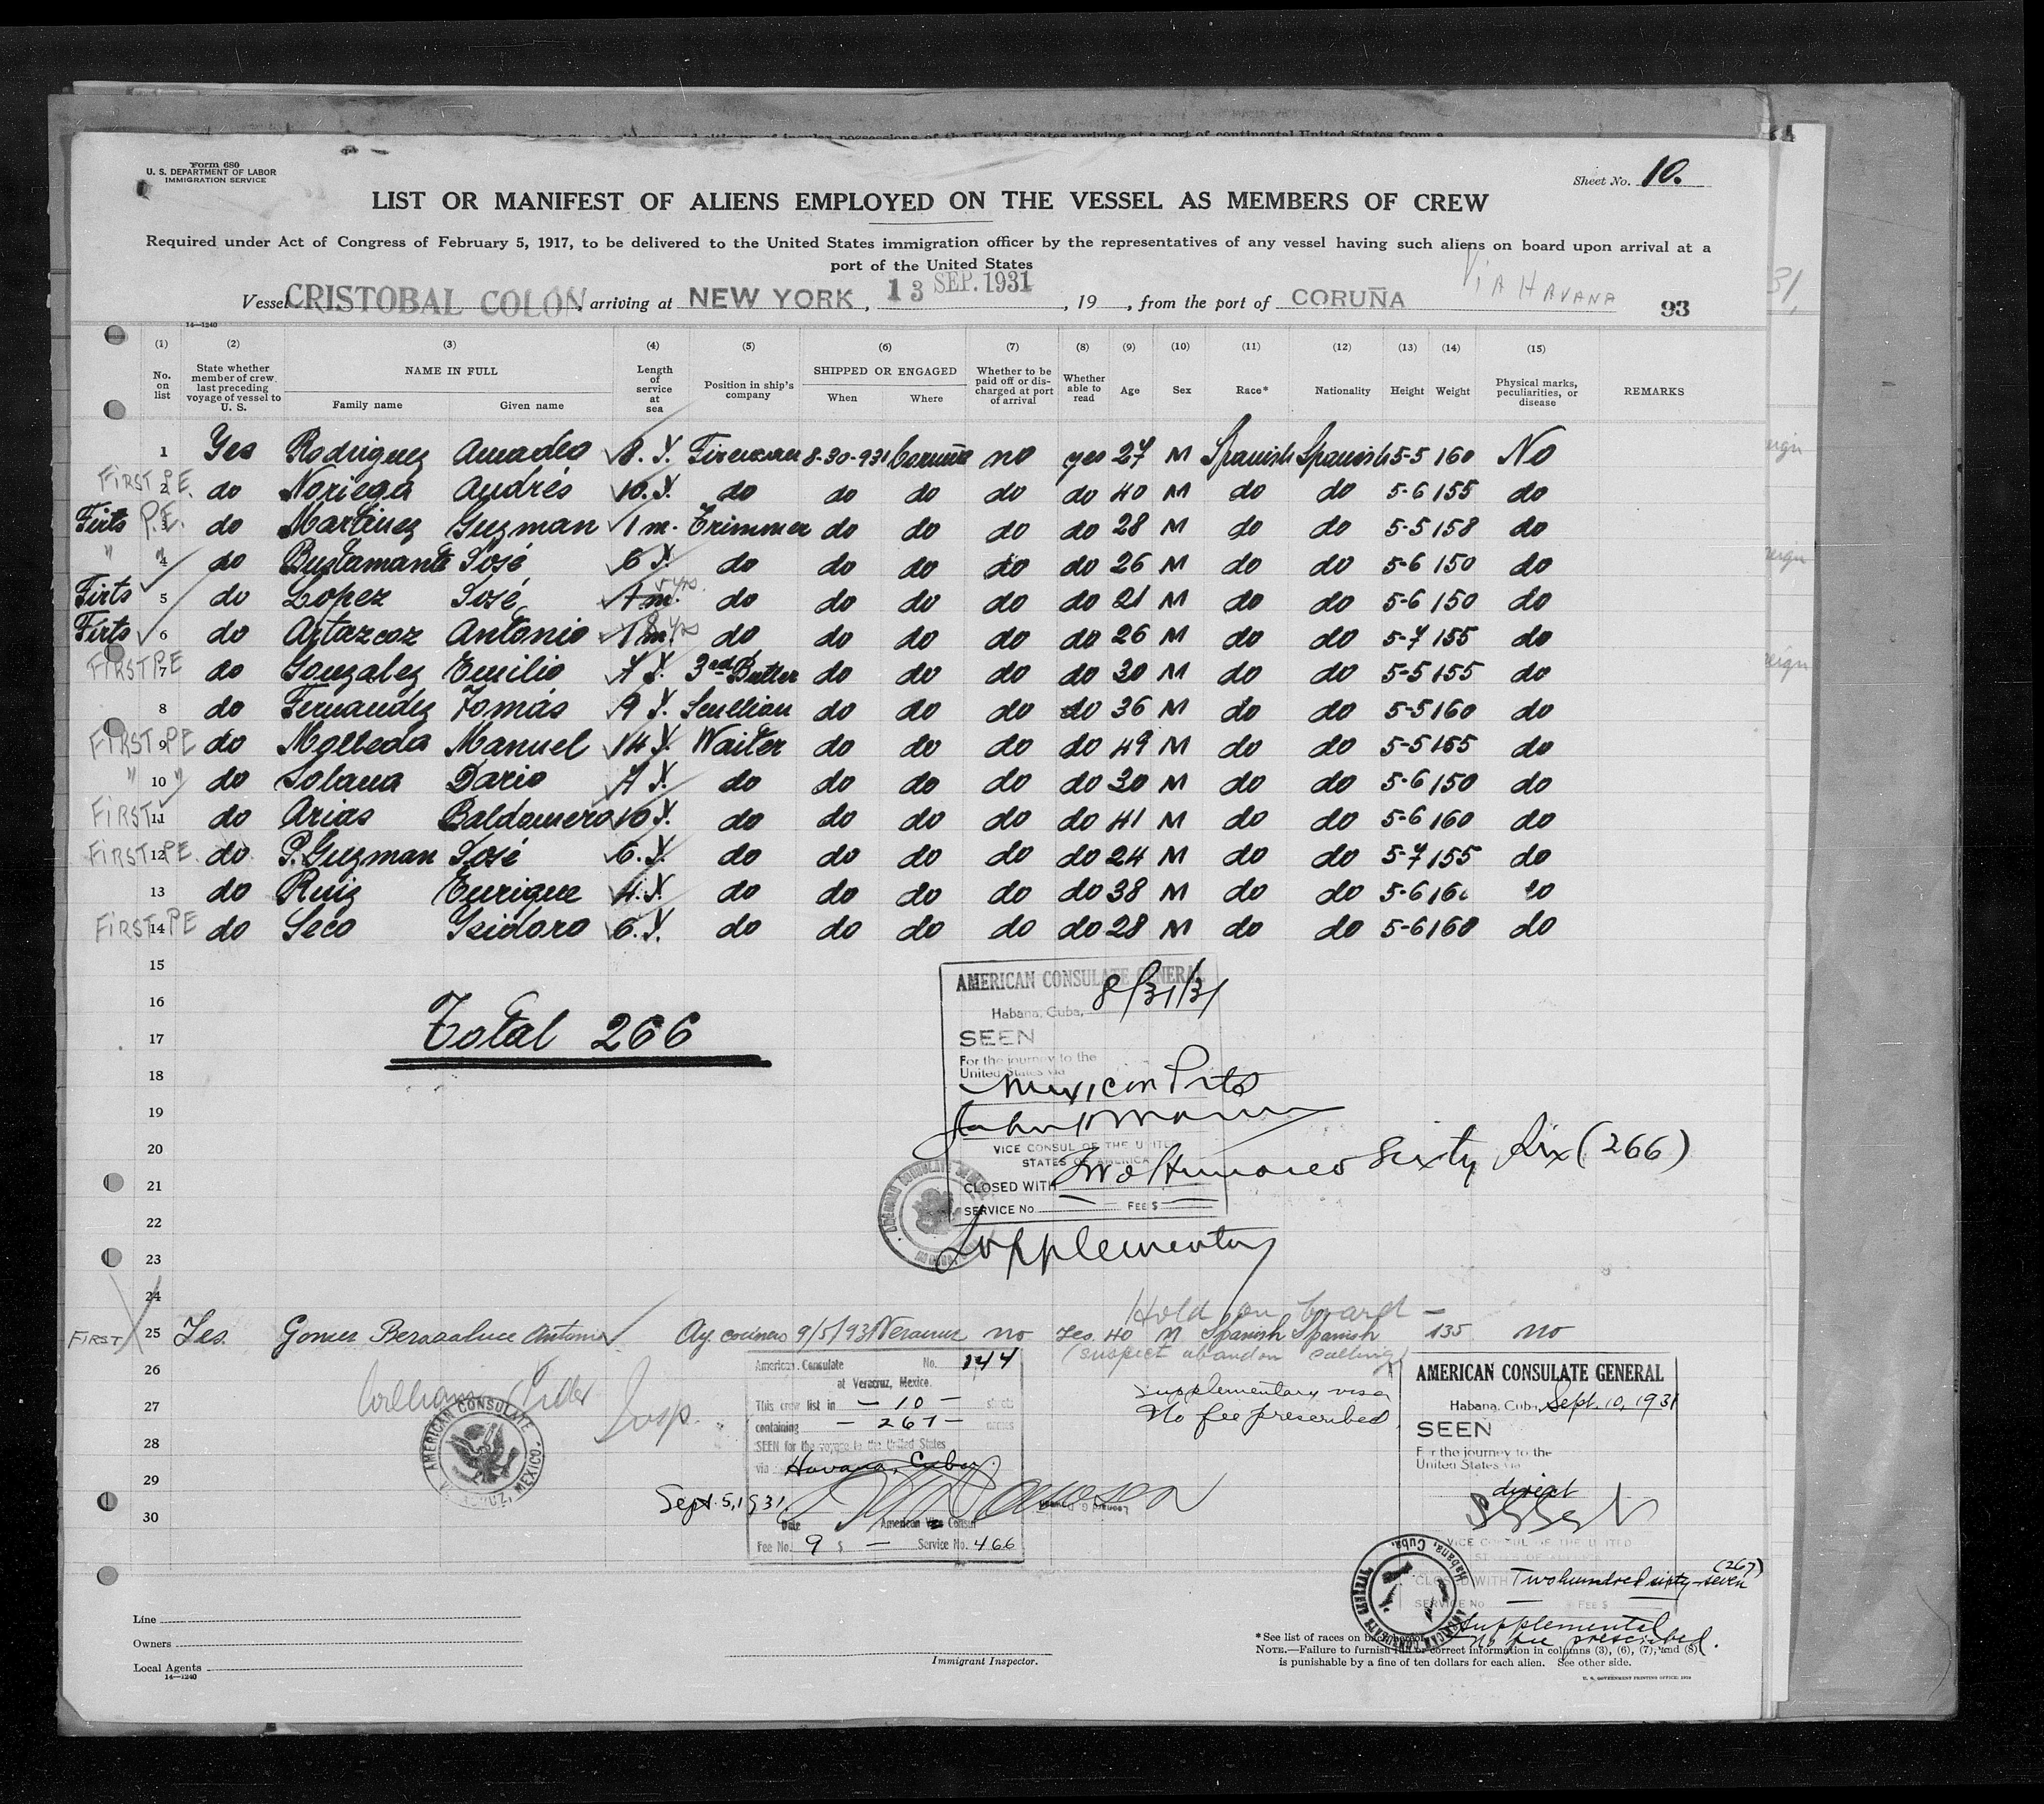 Form 680
U. S. DEPARTMENT OF LABOR
IMMIGRATION SERVICE
Sheet No. 10.
LIST OR MANIFEST OF ALIENS EMPLOYED ON THE VESSEL AS MEMBERS OF CREW
Required under Act of Congress of February 5, 1917, to be delivered to the United States immigration officer by the representatives of any vessel having such aliens on board upon arrival at a
port of the United States
Via Havana
Vessel CRISTOBAL COLON, arriving at NEW YORK, 13 SEP. 1931, 19 , from the port of CORUÑA
93
14—1240
(1) (2) (3) (4) (5) (6) (7) (8) (9) (10) (11) (12) (13) (14) (15)
No. on list
State whether member of crew last preceding voyage of vessel to U. S.
NAME IN FULL
Family name Given name
Length of service at sea
Position in ship's company
SHIPPED OR ENGAGED
When Where
Whether to be paid off or discharged at port of arrival
Whether able to read
Age Sex Race* Nationality Height Weight
Physical marks, peculiarities, or disease
REMARKS
1 Yes Rodriguez Amadeo 8. Y. Fireman 8-30-931 Coruña no yes 27 M Spanish Spanish 5-5 160 No
FIRST P.E. 2 do Noriega Andrés 10. Y. do do do do do 40 M do do 5-6 155 do
Firts P.E. 3 do Martinez Guzman 1 m. Trimmer do do do do 28 M do do 5-5 158 do
" " 4 do Bustamante José 6 Y. do do do do do 26 M do do 5-6 150 do
Firts 5 do Lopez José 1 m. 5 yrs. do do do do do 21 M do do 5-6 150 do
Firts 6 do Aztazcoz Antonio 1 m. 8 yrs do do do do do 26 M do do 5-7 155 do
FIRST P.E 7 do Gonzalez Emilio 7 Y. 3rd Butler do do do do 30 M do do 5-5 155 do
8 do Fernandez Tomás 9 Y. Scullian do do do do 36 M do do 5-5 160 do
FIRST PE 9 do Molleda Manuel 14 Y. Waiter do do do do 49 M do do 5-5 165 do
" " 10 do Solana Dario 7 Y. do do do do do 30 M do do 5-6 150 do
FIRST 11 do Arias Baldomero 10 Y. do do do do do 41 M do do 5-6 160 do
FIRST PE. 12 do P. Guzman José 6. Y. do do do do do 24 M do do 5-7 155 do
13 do Ruiz Enrique 4. Y. do do do do do 38 M do do 5-6 160 do
FIRST PE 14 do Seco Ysidoro 6. Y. do do do do do 28 M do do 5-6 160 do
15
16
17
18
19
20
21
22
23
24
Total 266
AMERICAN CONSULATE GENERAL
Habana, Cuba, 8/31/31
SEEN
For the journey to the
United States via
Mexican Ports
VICE CONSUL OF THE UNITED
STATES OF AMERICA
CLOSED WITH Two Hundred Sixty Six (266)
SERVICE No. FEE $
Supplementary
Hold on board —
FIRST 25 Yes. Gomez Antonio Ay. cocinero 9/5/931 Veracruz no Yes. 40 M Spanish Spanish 135 no
(suspect abandon calling)
26
27
28
29
30
Insp.
AMERICAN CONSULATE
VERACRUZ, MEXICO.
American Consulate No. 144
at Veracruz, Mexico.
This crew list in — 10 — sheets
containing — 267 — names
SEEN for the voyage to the United States
via Havana, Cuba.
Sept. 5, 1931
Date American Vice Consul
Fee No. 9 $ — Service No. 466
Supplementary visa
No fee prescribed
AMERICAN CONSULATE GENERAL
Habana, Cuba, Sept. 10, 1931
SEEN
For the journey to the
United States via
direct
VICE CONSUL OF THE UNITED
STATES OF AMERICA
CLOSED WITH Two hundred sixty-seven (267)
SERVICE No FEE $
Supplemental
No fee prescribed.
Line
Owners
Local Agents
14—1240
Immigrant Inspector.
*See list of races on back hereof.
NOTE.—Failure to furnish full or correct information in columns (3), (6), (7), and (8)
is punishable by a fine of ten dollars for each alien. See other side.
U. S. GOVERNMENT PRINTING OFFICE